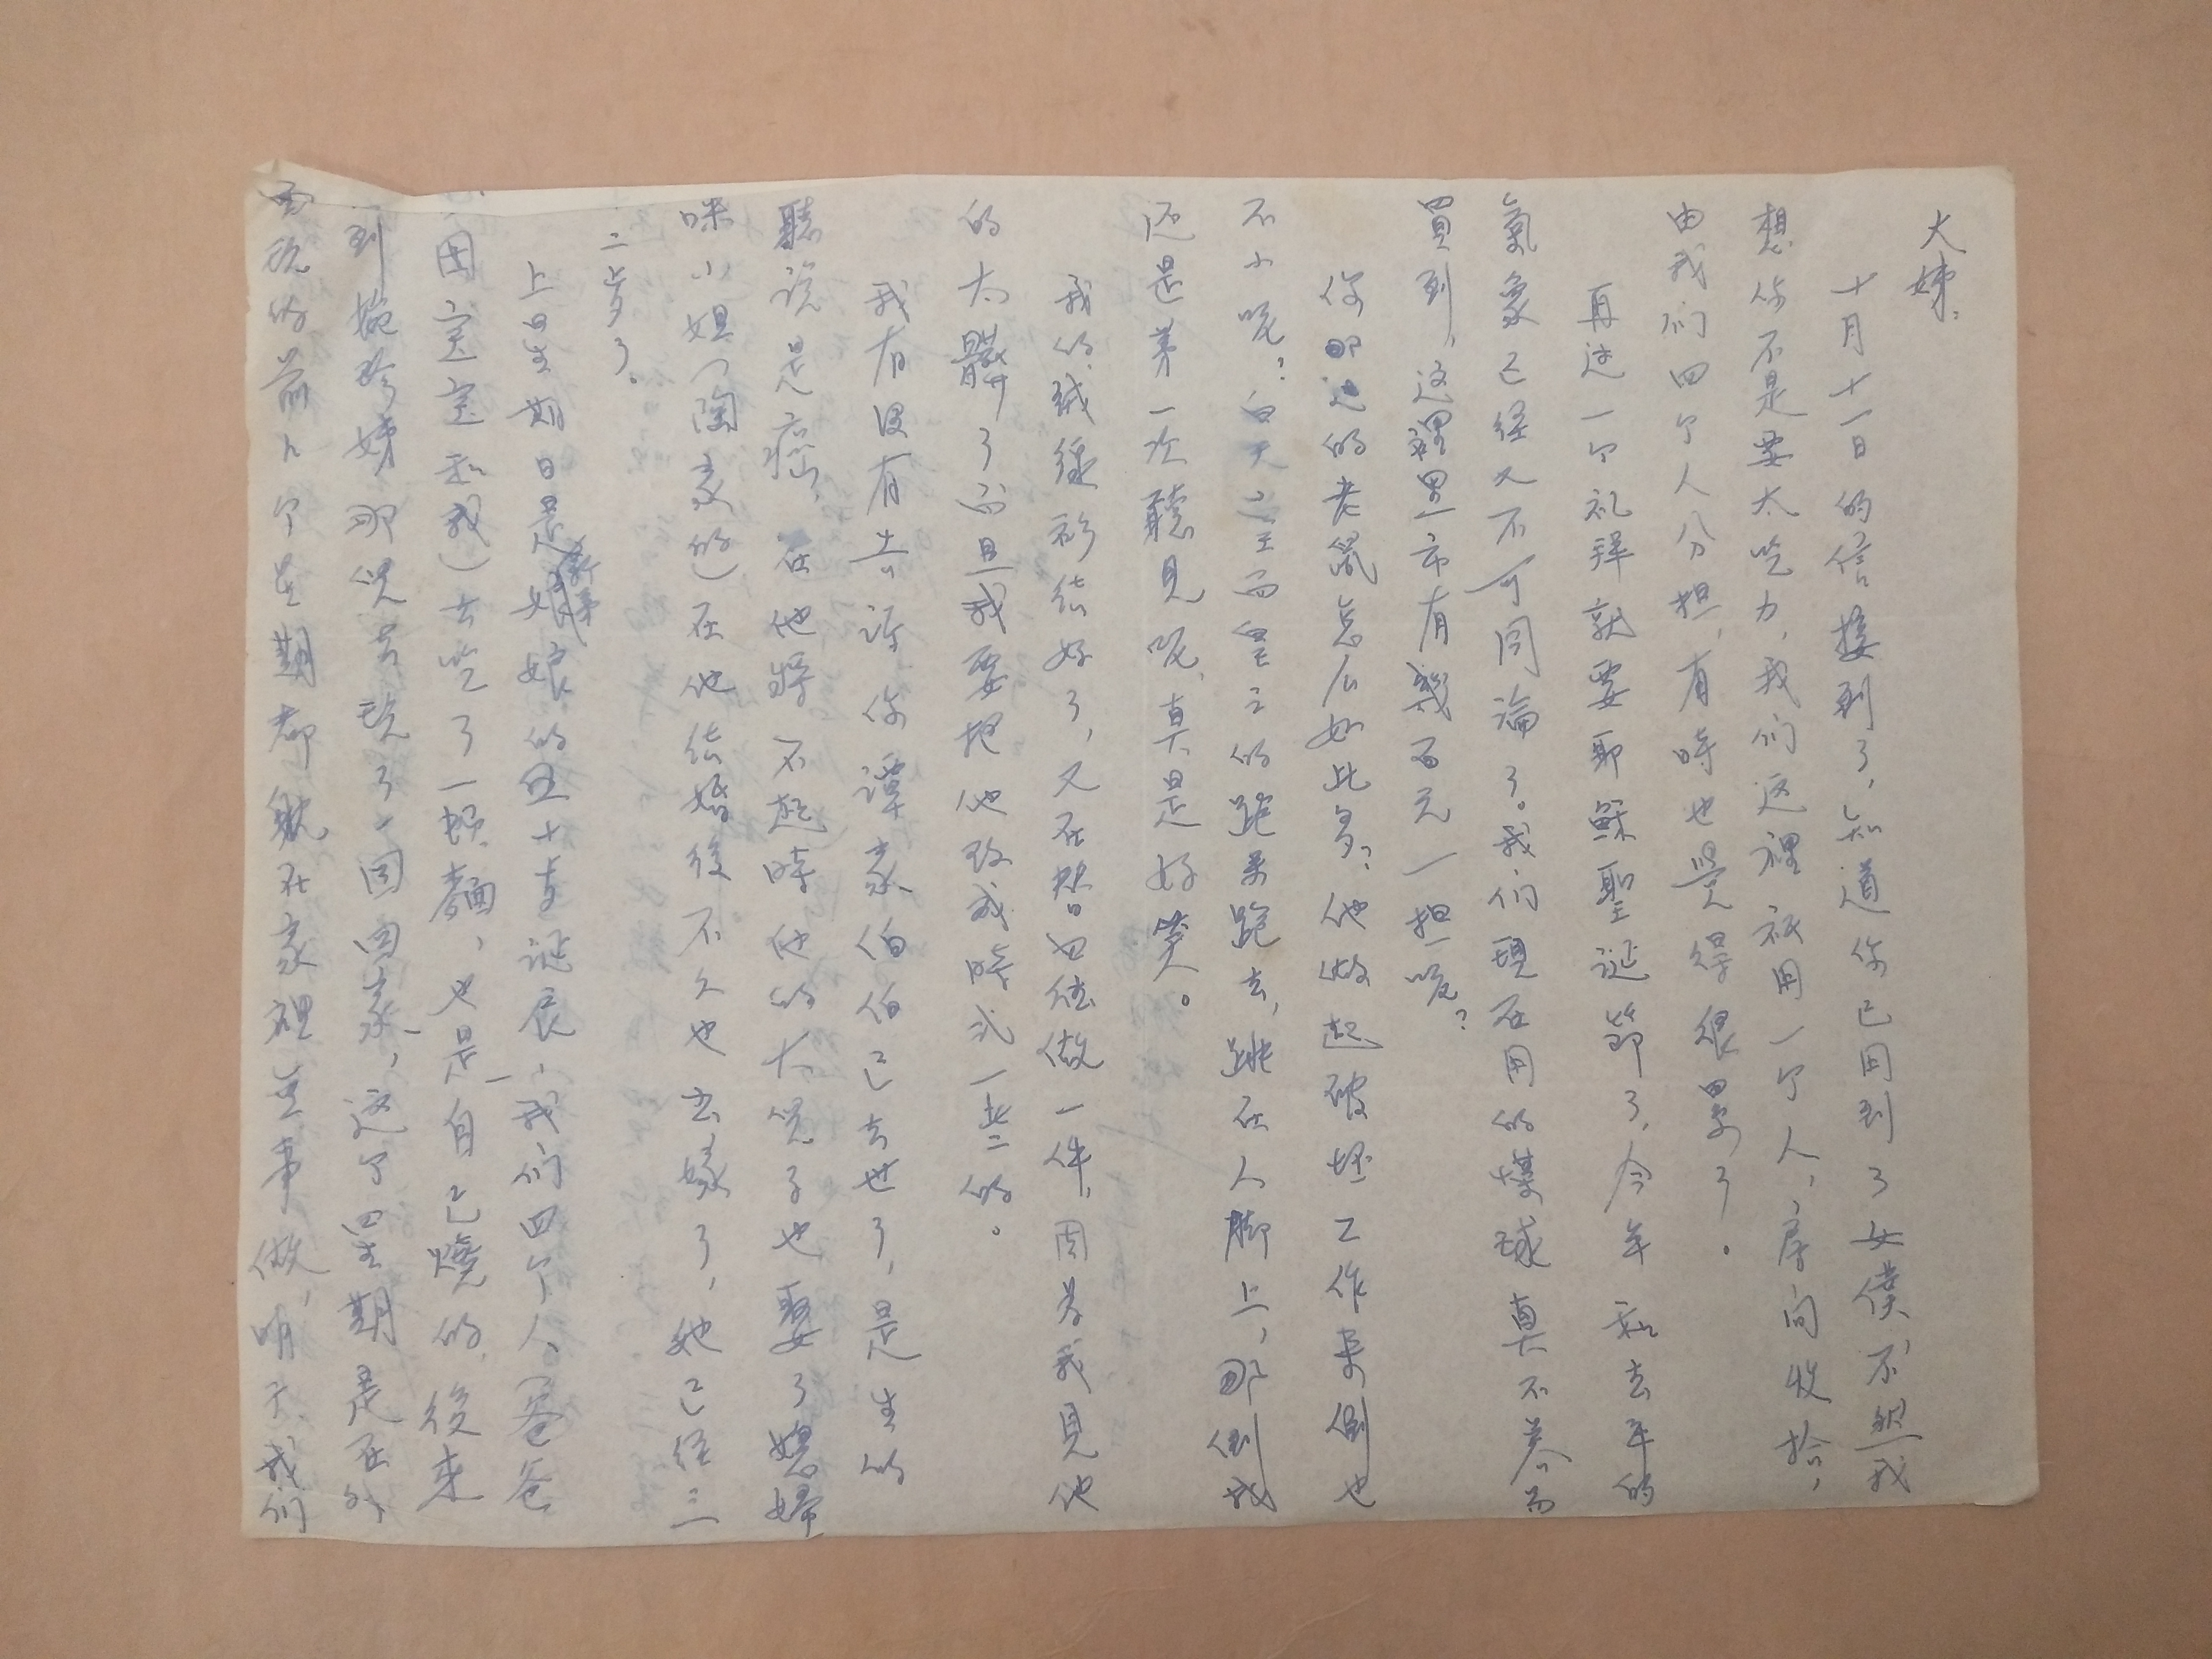 大姊：
十月十一日的信接到了，知道你已用到了女僕，不然我
想你不是要太吃力，我们这裡祇用一个人，房间收拾，
由我们四个人分担，有時也覺得很累了。
再过一个礼拜就要耶穌聖诞節了，今年和去年的
氣象已经又不可同論了。我们現在用的煤球真不容易
買到，这裡黑市有幾百元一担呢？
你那边的老鼠怎么如此多？他做起破坏工作来倒也
不小呢？白天之王而皇之的跑来跑去，跳在人脚上，那倒我
还是第一次聽見呢，真是好笑。
我的绒綫衫结好了，又在替她结做一件，因为我見他
的太髒了而且我要把他改成時式一些的。
我有没有告诉你譚家伯伯已去世了，是生的
聽说是癌，在他将不起時他的大兒子也娶了媳婦
咪小姐（陶家的）在他结婚後不久也出嫁了，她已经三
二岁了。
上星期日是新弟娘的五十圭诞辰，我们四个人爸爸
因宝宝和我）去吃了一頓麵，也是自己燒的，後来
到婉珍姊那兒去玩了一回回家，这个星期是在外
面玩的前几个星期都躭在家裡無事做，明天我们